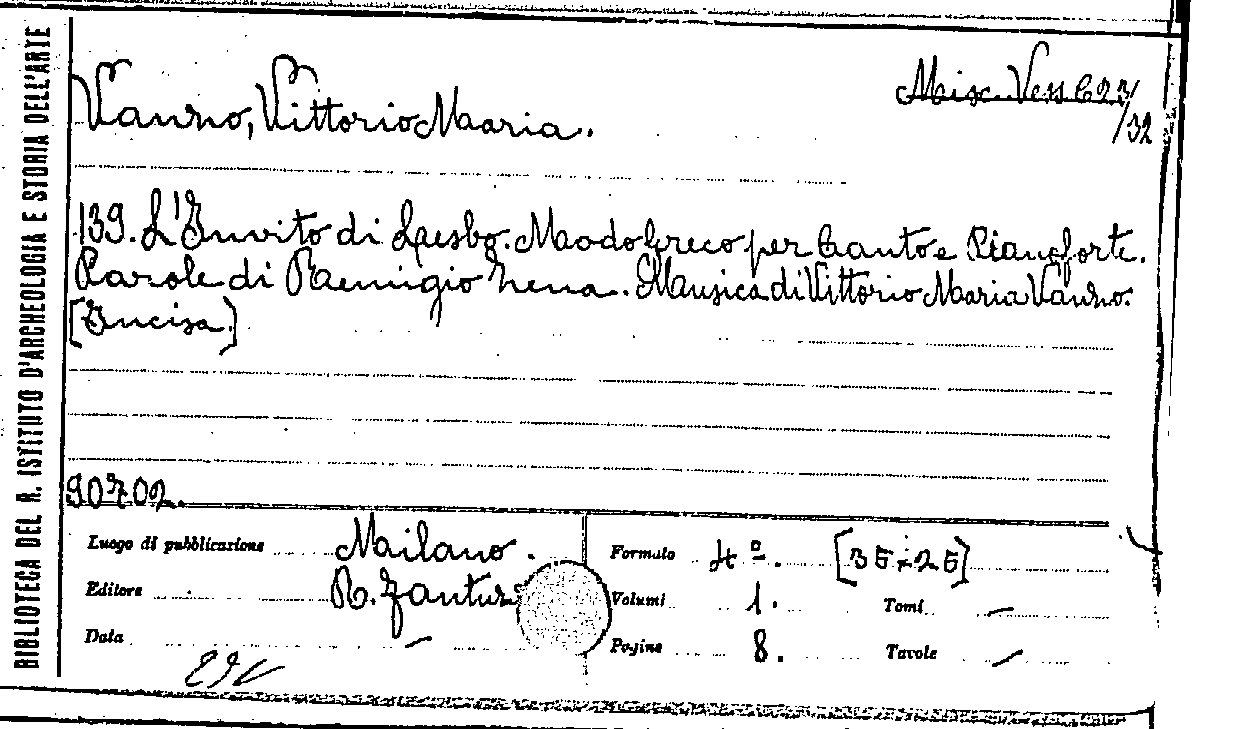 BIBLIOTECA DEL R. ISTITUTO D'ARCHEOLOGIA E STORIA DELL'ARTE
Misc. Vess C23/32
Vanno, Vittorio Maria.
139. L'Invito di Laesbo. Modo Greco per Canto e Pianoforte.
Parole di Remigio Zena. Musica di Vittorio Maria Vanno.
[Incisa.]
90702.
Luogo di pubblicazione Milano.
Editore R. Fantuz
Data —
Formato 4º. [35×25]
Volumi 1. Tomi —
Pagine 8. Tavole —